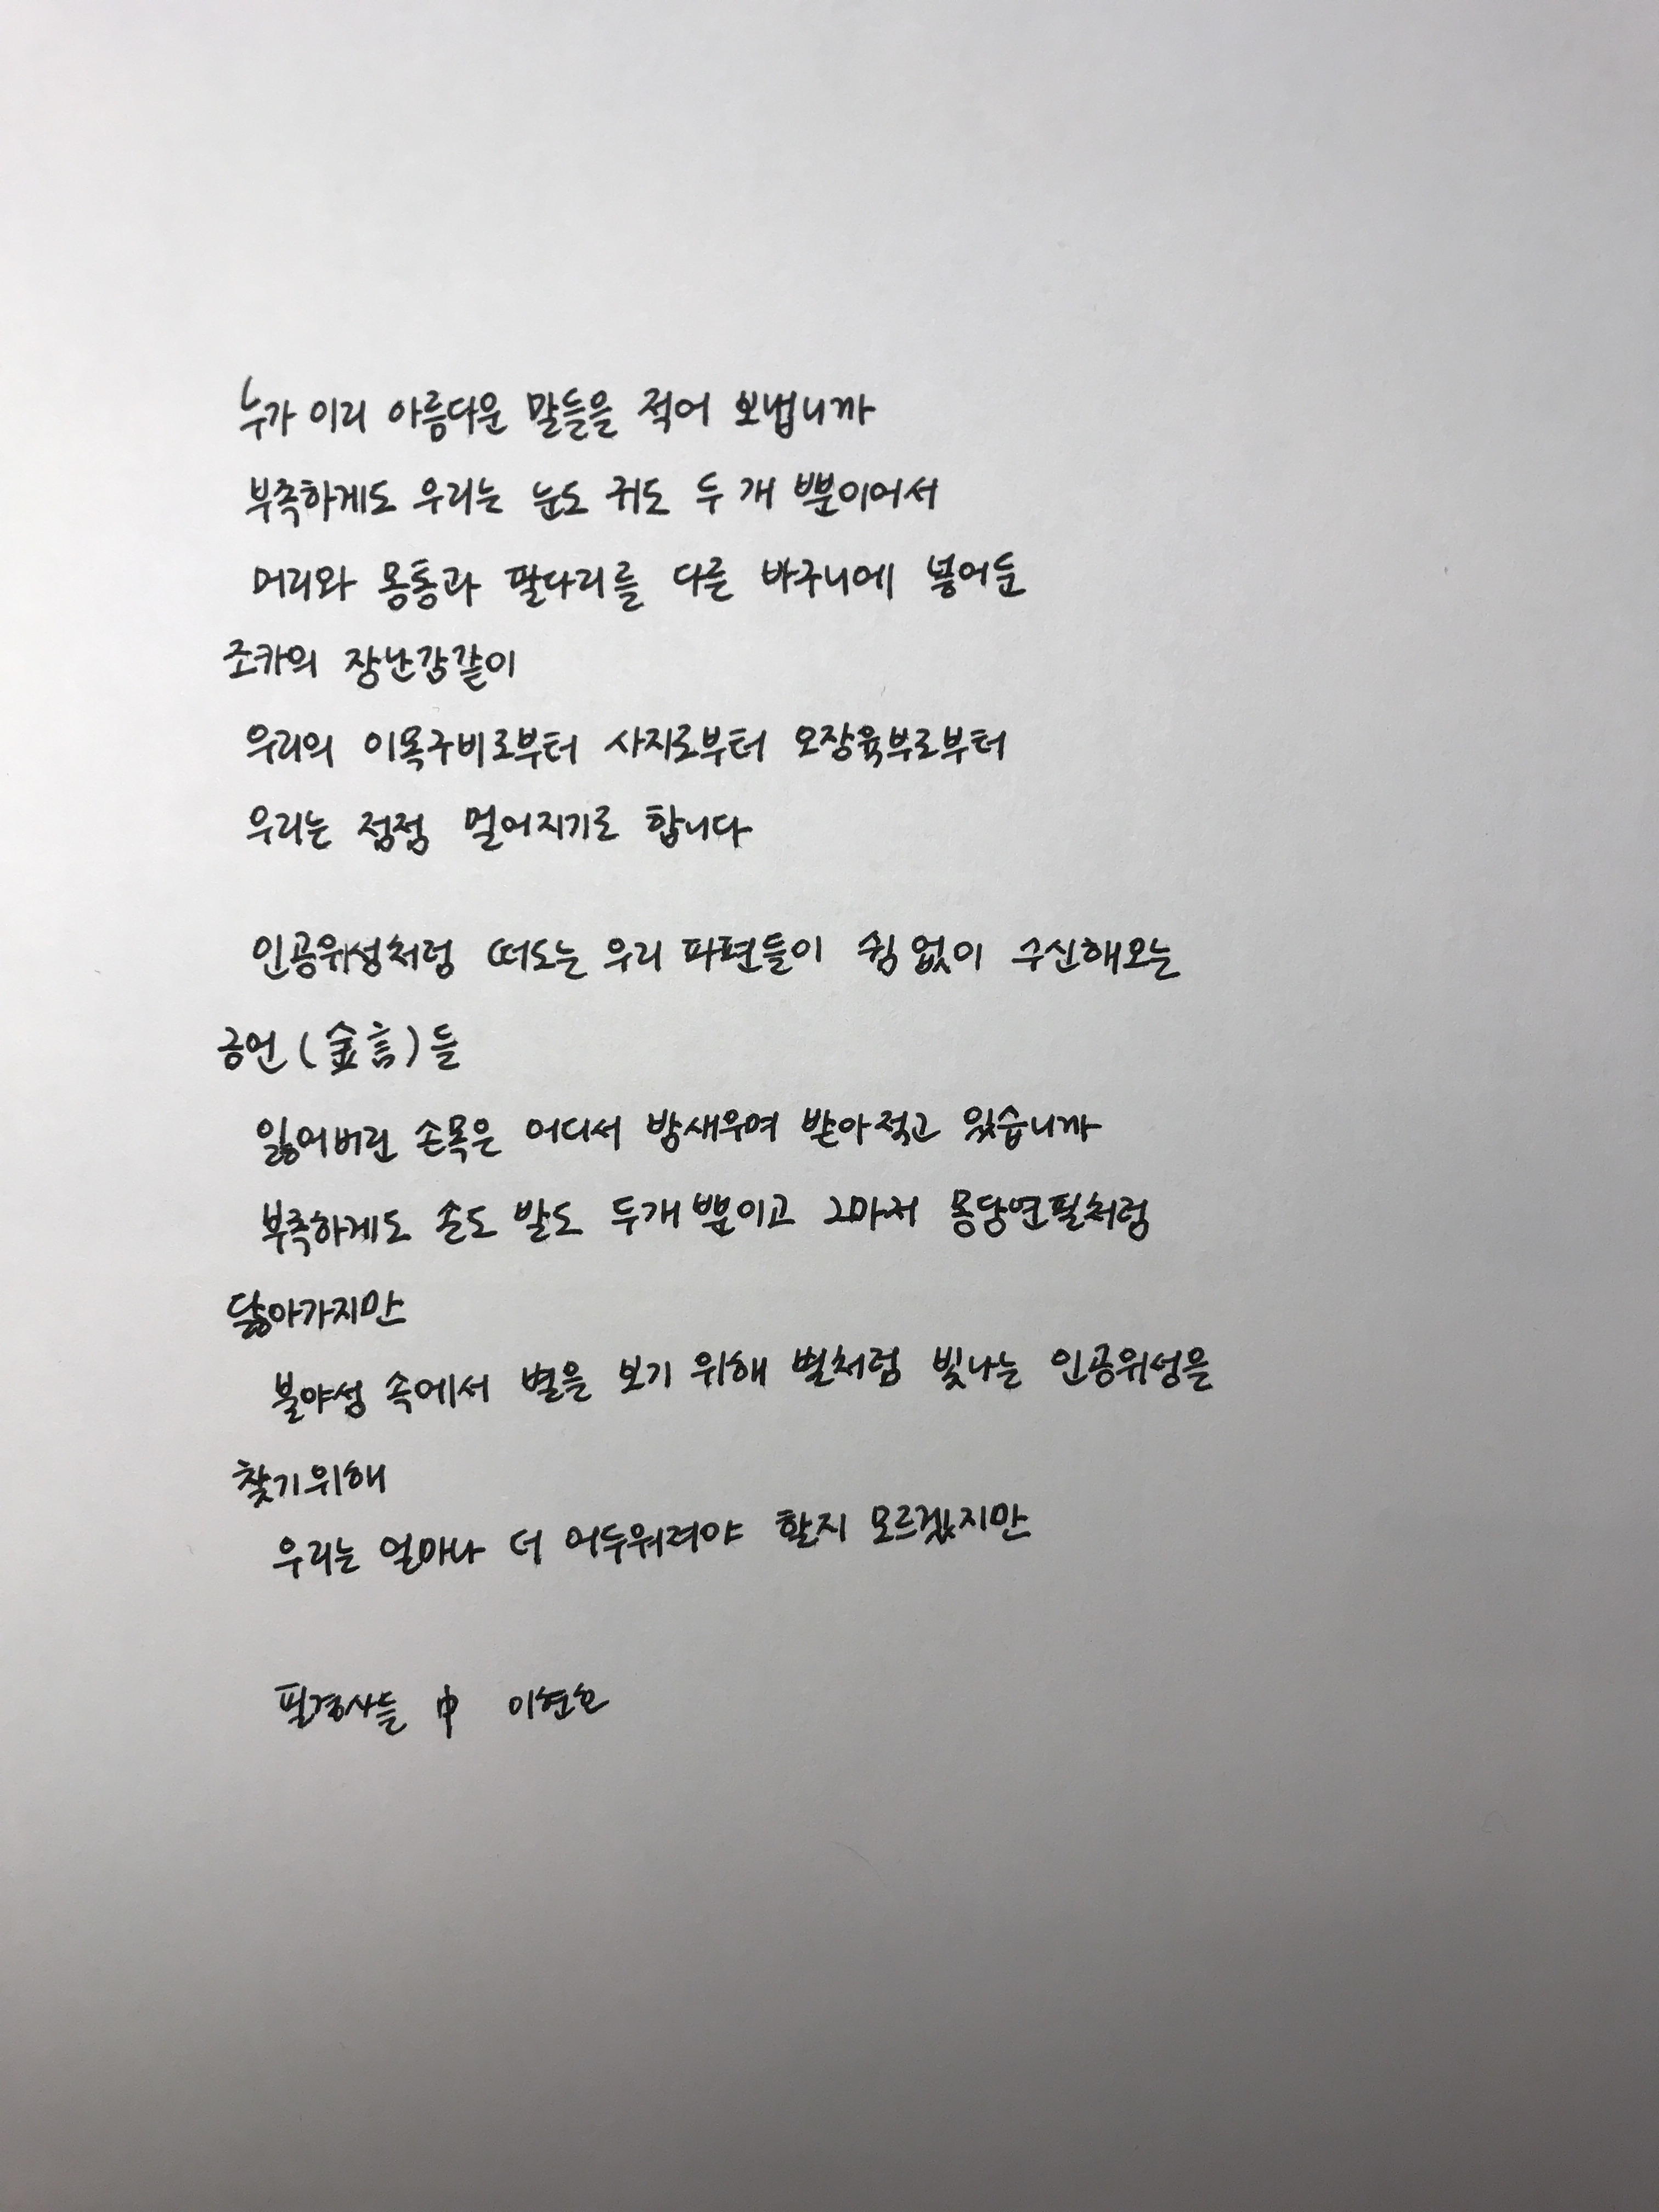 누가 이리 아름다운 말들을 적어 보냅니까
부족하게도 우리는 눈도 귀도 두 개 뿐이어서
머리와 몽통과 팔다리를 다른 바구니에 넣어둔
조카의 장난감같이
우리의 이목구비로부터 사지로부터 오장육부로부터
우리는 점점 멀어지기로 합니다
인공위성처럼 떠도는 우리 파편들이 쉼 없이 수신해오는
금언(金言)들
잃어버린 손목은 어디서 밤새우며 받아적고 있습니까
부족하게도 손도 발도 두개 뿐이고 그마저 몽당연필처럼
닳아가지만
불야성 속에서 별을 보기 위해 별처럼 빛나는 인공위성을
찾기위해
우리는 얼마나 더 어두워려야 할지 모르겠지만
필경사들 中 이현호